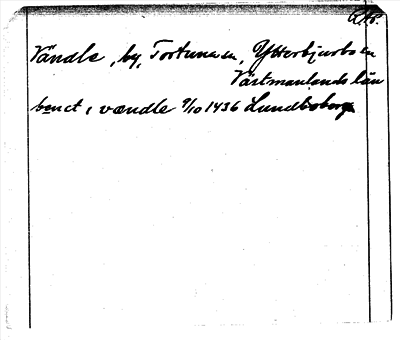 Vändle, by, Fortuna sn, Ytterbjurbo en
Västmanlands län
benct i vændle 9/10 1436 Lundboborga